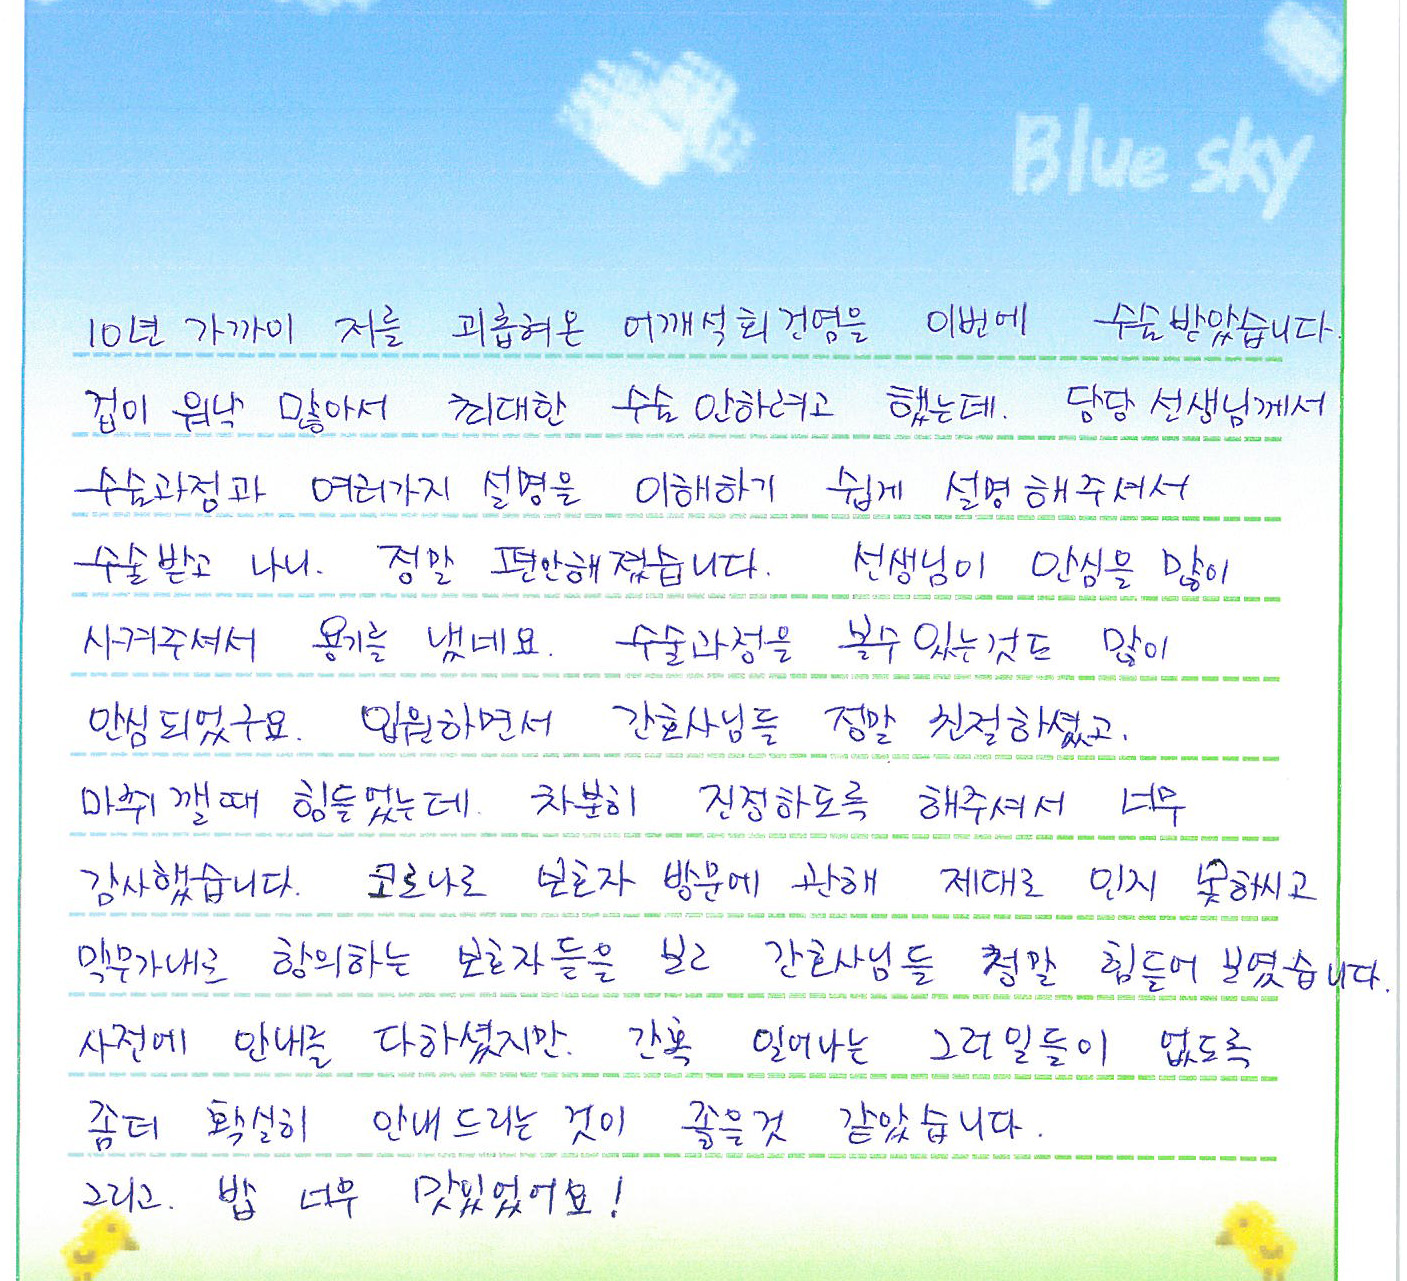 Blue sky
10년 가까이 저를 괴롭혀온 어깨석회건염을 이번에 수술받았습니다.
겁이 워낙 많아서 최대한 수술안하려고 했는데. 담당선생님께서
수술과정과 여러가지 설명을 이해하기 쉽게 설명해주셔서
수술받고 나니. 정말 편안해졌습니다. 선생님이 안심을 많이
시켜주셔서 용기를 냈네요. 수술과정을 볼수있는것도 많이
안심되었구요. 입원하면서 간호사님들 정말 친절하셨고.
마취깰때 힘들었는데. 차분히 진정하도록 해주셔서 너무
감사했습니다. 코로나로 보호자 방문에 관해 제대로 인지 못하시고
막무가내로 항의하는 보호자들을 보고 간호사님들 정말 힘들어보였습니다.
사전에 안내를 다하셨지만. 간혹 일어나는 그러일들이 없도록
좀더 확실히 안내드리는것이 좋을것 같았습니다.
그리고. 밥 너무 맛있었어요!